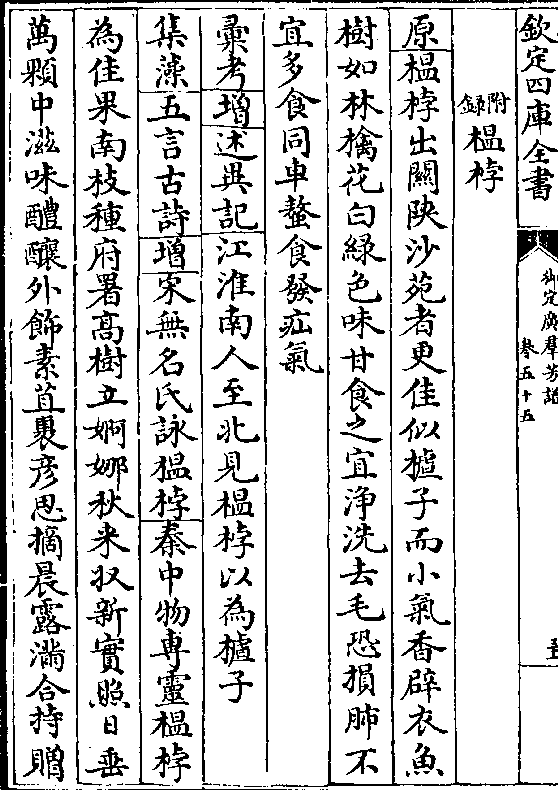 欽定四庫全書
御定廣羣芳譜
卷五十五
附録榅桲
原榅桲出關陝沙苑者更佳似樝子而小氣香辟衣魚
樹如林檎花白綠色味甘食之宜浄洗去毛恐損肺不
宜多食同車螯食發疝氣
彚考增述異記江淮南人至北見榅桲以為樝子
集藻五言古詩增宋無名氏詠榅桲秦中物専靈榅桲
為佳果南枝種府署髙樹立婀娜秋来収新實照日垂
萬顆中滋味醴釀外飾素苴褁彦思摘晨露滿合持贈